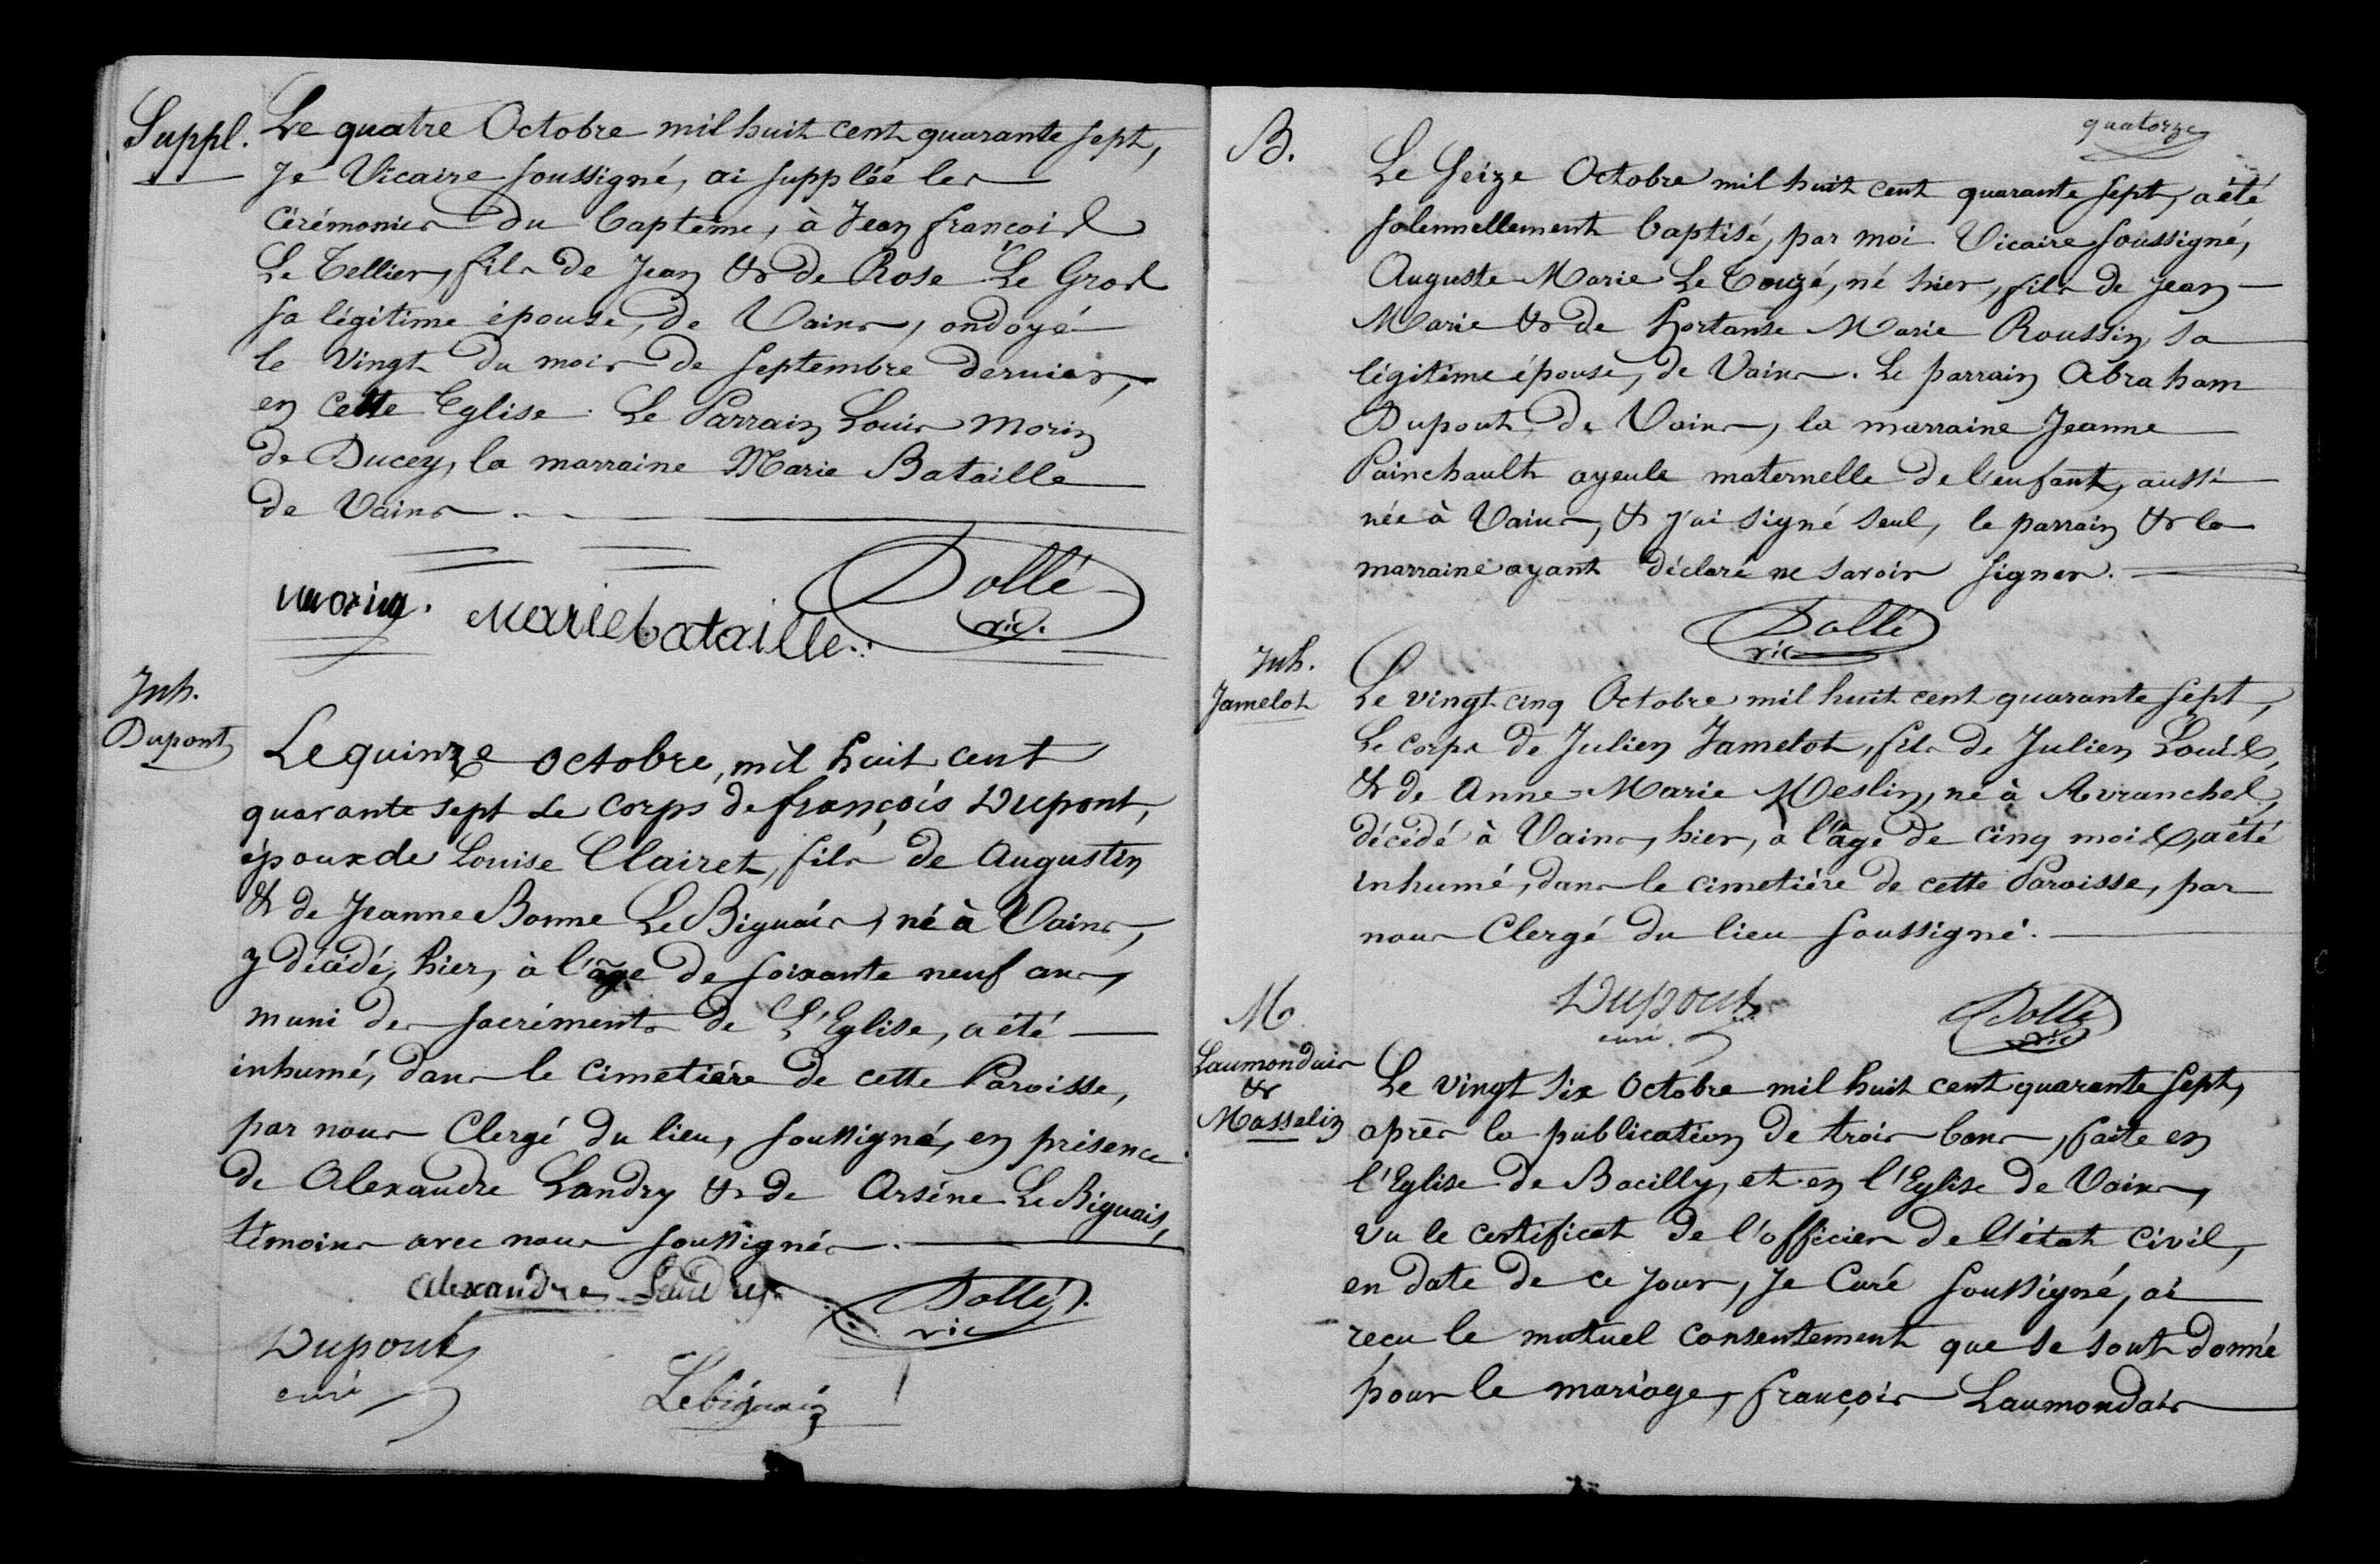 Suppl.
Le quatre Octobre mil huit cent quarante sept,
Je Vicaire soussigné, ai supplée les
cérémonies du baptême, à Jean françois
Le Tellier, fils de Jean & de Rose Le Gros
sa légitime épouse, de Vains, ondoyé
le vingt du mois de septembre dernier,
en cette Eglise. Le Parrain Louis Morin
de Ducey, la marraine Marie Bataille
de Vains.
morin. Marie bataille. Dollé
vic.
Inh.
Dupont
Le quinze octobre, mil huit cent
quarante sept Le Corps de françois Dupont,
époux de Louise Clairet, fils de Augustin
& de Jeanne Bonne Le Biguais, né à Vains,
y décédé, hier, à l'âge de soixante neuf ans,
muni des sacréments de L'Eglise, a été
inhumé, dans le cimetiére de cette Paroisse,
par nous Clergé du lieu, soussigné, en présence
de Alexandre Landry & de Arséne Le Biguais,
témoins avec nous soussignés.
Alexandre Landry Dollé.
vic
Dupont
curé
Lebiguais
quatorze
B.
Le seize Octobre mil huit cent quarante sept, a été
solennellement baptisé, par moi Vicaire soussigné,
Auguste Marie Le Touzé, né hier, fils de Jean
Marie & de hortanse Marie Roussin, sa
légitime épouse, de Vains. Le parrain Abraham
Dupont de Vains, la marraine Jeanne
Painchault ayeule maternelle de l'enfant, aussi
née à Vains, & j'ai signé seul, le parrain & la
marraine ayant déclaré ne savoir signer.
Dollé
vic
Inh.
Jamelot
Le vingt-cinq Octobre mil huit cent quarante sept,
Le corps de Julien Jamelot, fils de Julien Louis,
& de Anne-Marie Meslin, né à Avranches,
décédé à Vains, hier, à l'âge de cinq mois, a été
inhumé, dans le cimetiére de cette Paroisse, par
nous Clergé du lieu soussigné.
Dupont
curé.
Dollé
vic
M
Laumondais
&
Masselin
Le vingt six Octobre mil huit cent quarante sept,
après la publication de trois bans, faite en
l'Eglise de Bacilly, et en l'Eglise de Vains,
vu le certificat de l'officier de l'état civil,
en date de ce jour, Je Curé soussigné, ai
reçu le mutuel consentement que se sont donné
pour le mariage, françois Laumondais